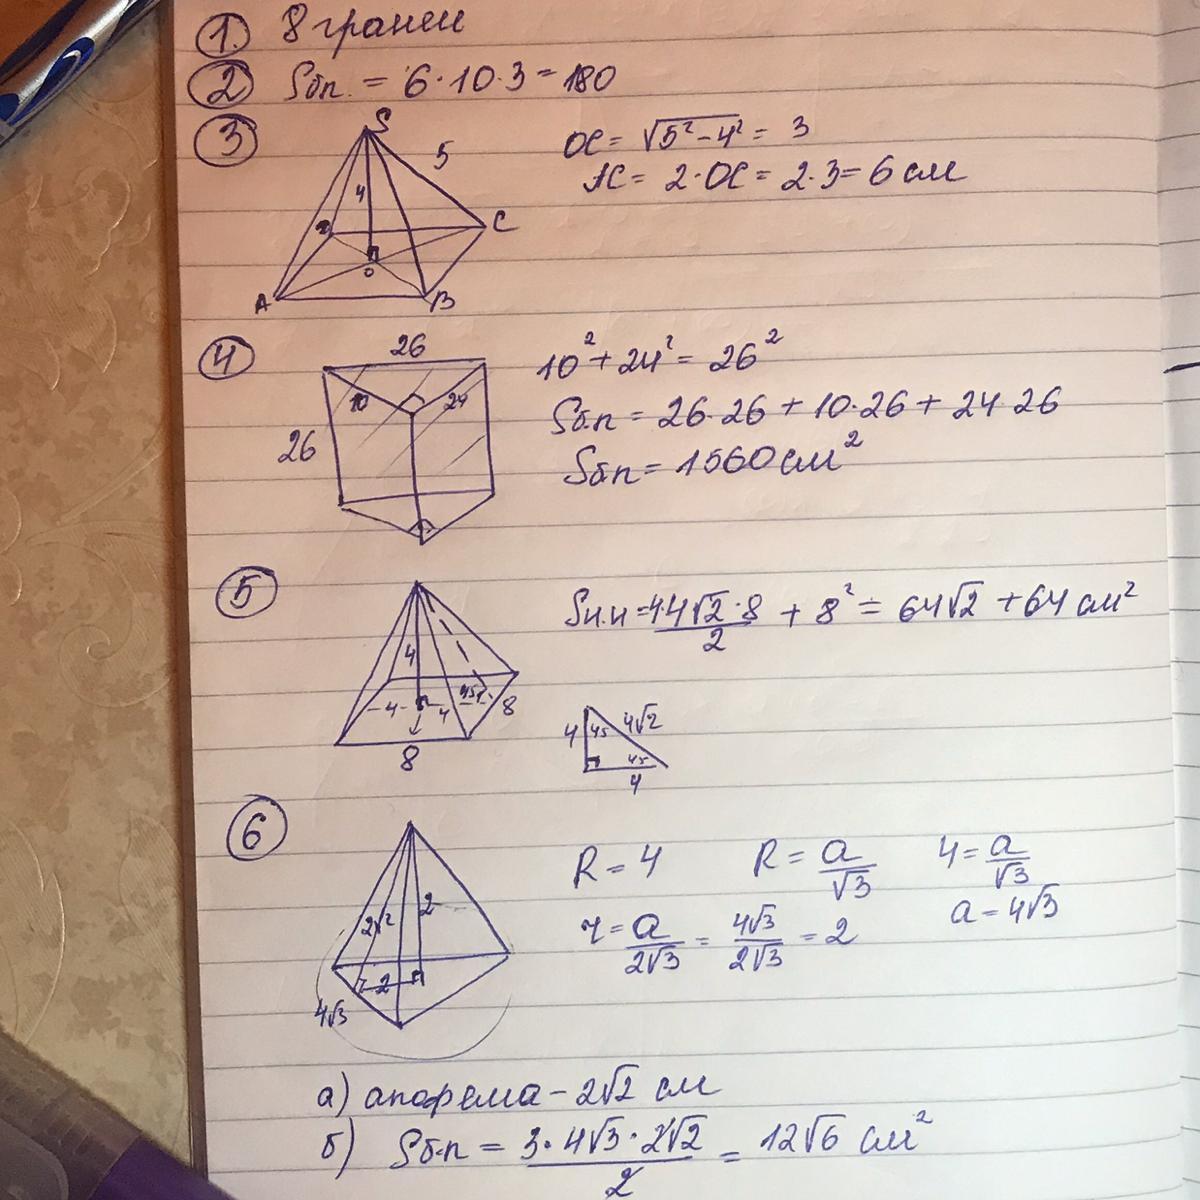 1. 8 граней
2 Sбп. = 6·10·3 = 180
3
S
5
4
D
C
O
A
B
OC = √5²-4² = 3
AC = 2·OC = 2·3 = 6 см
4
26
10
24
26
10² + 24² = 26²
Sб.п = 26·26 + 10·26 + 24·26
Sбп = 1560 см²
5
4
4
4
45
8
8
Sп.п = 4·4√2·8/2 + 8² = 64√2 + 64 см²
4
45
4√2
45
4
6
2√2
2
2
4√3
R = 4 R = a/√3 4 = a/√3
r = a/2√3 = 4√3/2√3 = 2 a = 4√3
а) апофема - 2√2 см
б) Sб.п = 3·4√3·2√2/2 = 12√6 см²